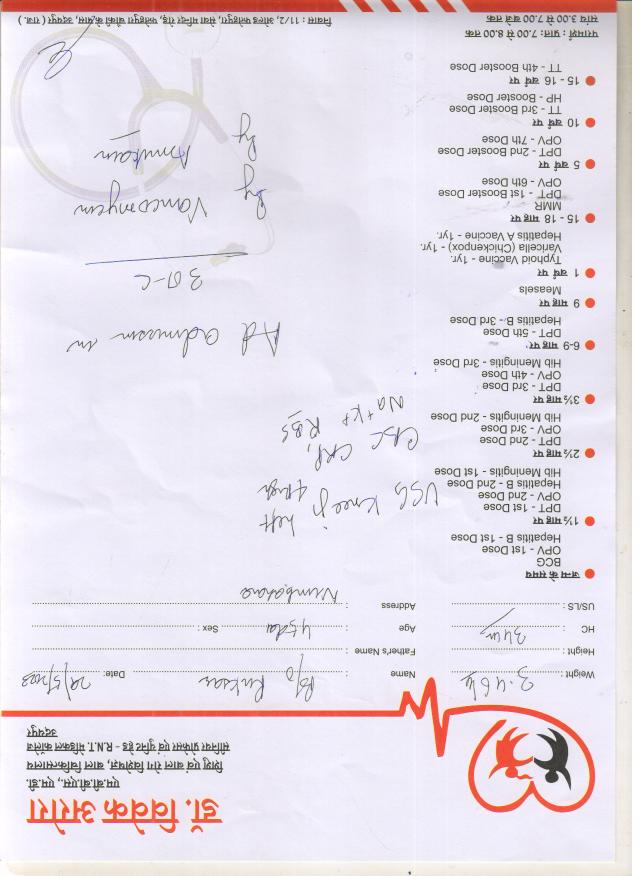 डॉ. विवेक अरोरा
एम.बी.बी.एस., एम.डी.
शिशु एवं बाल रोग विशेषज्ञ, बाल चिकित्सालय
सीनियर प्रोफेसर एवं यूनिट हेड - R.N.T. मेडिकल कॉलेज
उदयपुर
Weight : 3.46
Name : B/o
Date: 29/5/2023
Height :
Father's Name :
HC : 34
Age : 45
Sex :
US/LS :
Address :
जन्म के समय
BCG
OPV - 1st Dose
Hepatitis B - 1st Dose
1½ माह पर
DPT - 1st Dose
OPV - 2nd Dose
Hepatitis B - 2nd Dose
Hib Meningitis - 1st Dose
2½ माह पर
DPT - 2nd Dose
OPV - 3rd Dose
Hib Meningitis - 2nd Dose
3½ माह पर
DPT - 3rd Dose
OPV - 4th Dose
Hib Meningitis - 3rd Dose
6-9 माह पर
DPT - 5th Dose
Hepatitis B - 3rd Dose
9 माह पर
Measels
1 वर्ष पर
Typhoid Vaccine - 1yr.
Varicella (Chickenpox) - 1yr.
Hepatitis A Vaccine - 1yr.
15 - 18 माह पर
MMR
DPT - 1st Booster Dose
OPV - 6th Dose
5 वर्ष पर
DPT - 2nd Booster Dose
OPV - 7th Dose
10 वर्ष पर
TT - 3rd Booster Dose
HP - Booster Dose
15 - 16 वर्ष पर
TT - 4th Booster Dose
USG knee jt left
CBC CRP, RBS
Na + K+
Ad admission in
30-C
Vancomycin
Amikacin
परामर्श : प्रातः 7.00 से 8.00 तक
सांय 3.00 से 7.00 बजे तक
निवास : 11/2, ओल्ड फतेहपुरा, सेवा मन्दिर रोड़, फतेहपुरा चौकी के पास, उदयपुर ( राज. )